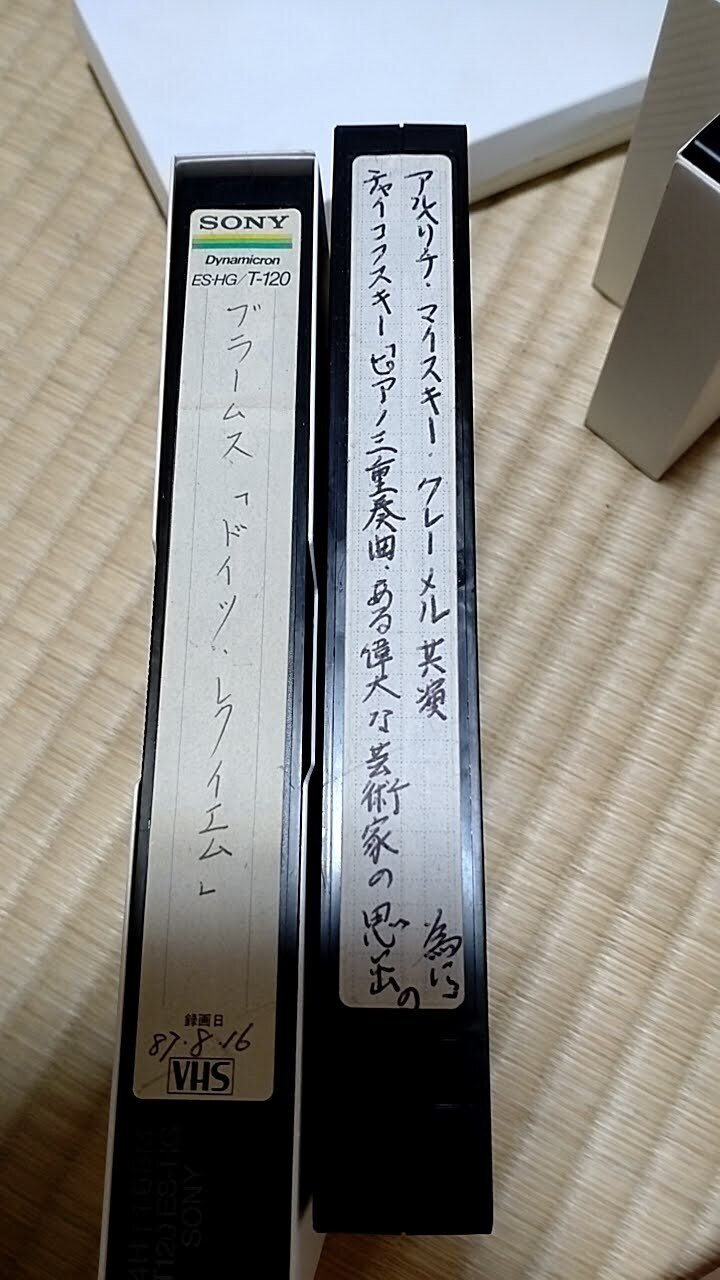 SONY
Dynamicron
ES·HG/T-120
ブラームス「ドイツ・レクイエム」
録画日
87.8.16
VHS
T120 ES-HG
SONY
アルヘリチ・マイスキー・クレーメル共演
チャイコフスキー「ピアノ三重奏曲・ある偉大な芸術家の思い出の
為に」